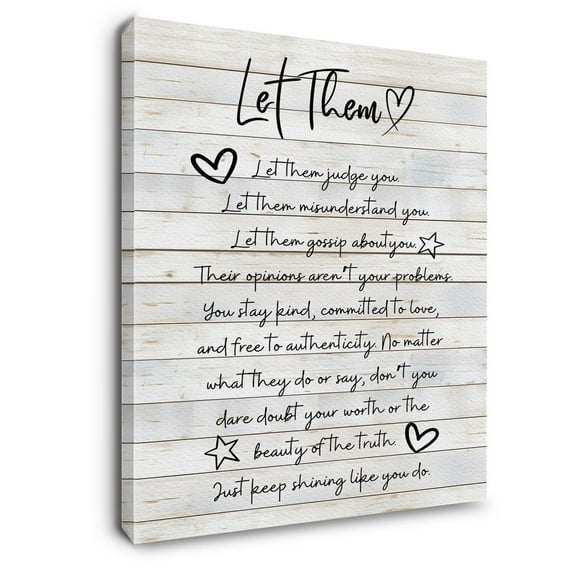 Let Them
Let them judge you.
Let them misunderstand you.
Let them gossip about you.
Their opinions aren't your problems.
You stay kind, committed to love,
and free to authenticity. No matter
what they do or say, don't you
dare doubt your worth or the
beauty of the truth.
Just keep shining like you do.